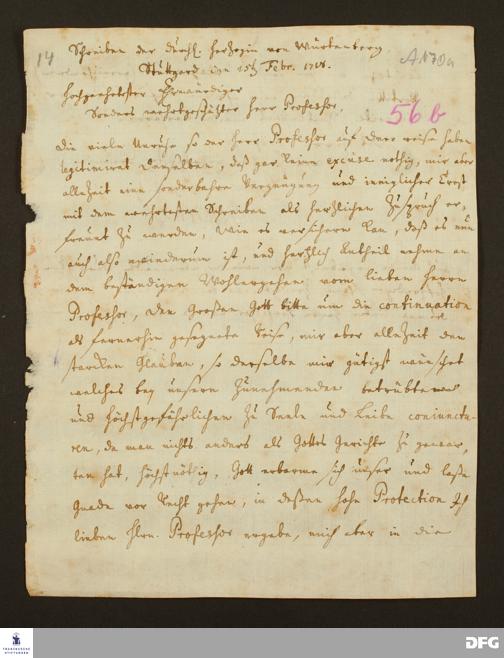 14
A 170a
Schreiben der durchl. Herzogin von Würtenberg
Stuttgard den 15t Febr. 1718.
Hochgeehrtester Ehrwürdiger
Sonders werthgeschätzter Herr Professor,
56 b
die viele Unruhe so der Herr Professor auf dero reise haben
legitimirt denselben, daß gar keine excuse nothig, mir aber
allezeit eine sonderbahre Vergnügung und inniglicher Trost
mit dem werthesten Schreiben als herzlichen Zuspruch er,
freuet zu werden, Wie es versichern kan, daß es nun
auch also wiederum ist, und herzlich Antheil nehme an
dem beständigen Wohlergehen vom lieben Herrn
Professor, den Großen Gott bitte um die continuation
als fernerhin gesegnete Reise, mir aber allezeit den
starcken Glauben, so derselbe mir gütigst wünschet
welches bey unsern Zunehmenden betrübten
und höchstgefährlichen zu Seele und Leibe coniunctu-
ren, da man nichts anders als Gottes Gerichte zu gewar,
ten hat, höchstnötig, Gott erbarme sich unser und laße
Gnade vor Recht gehen, in deßen hohe Protection Ich
lieben Hrn. Professor ergebe, mich aber in die
FRANCKESCHE
STIFTUNGEN
DFG